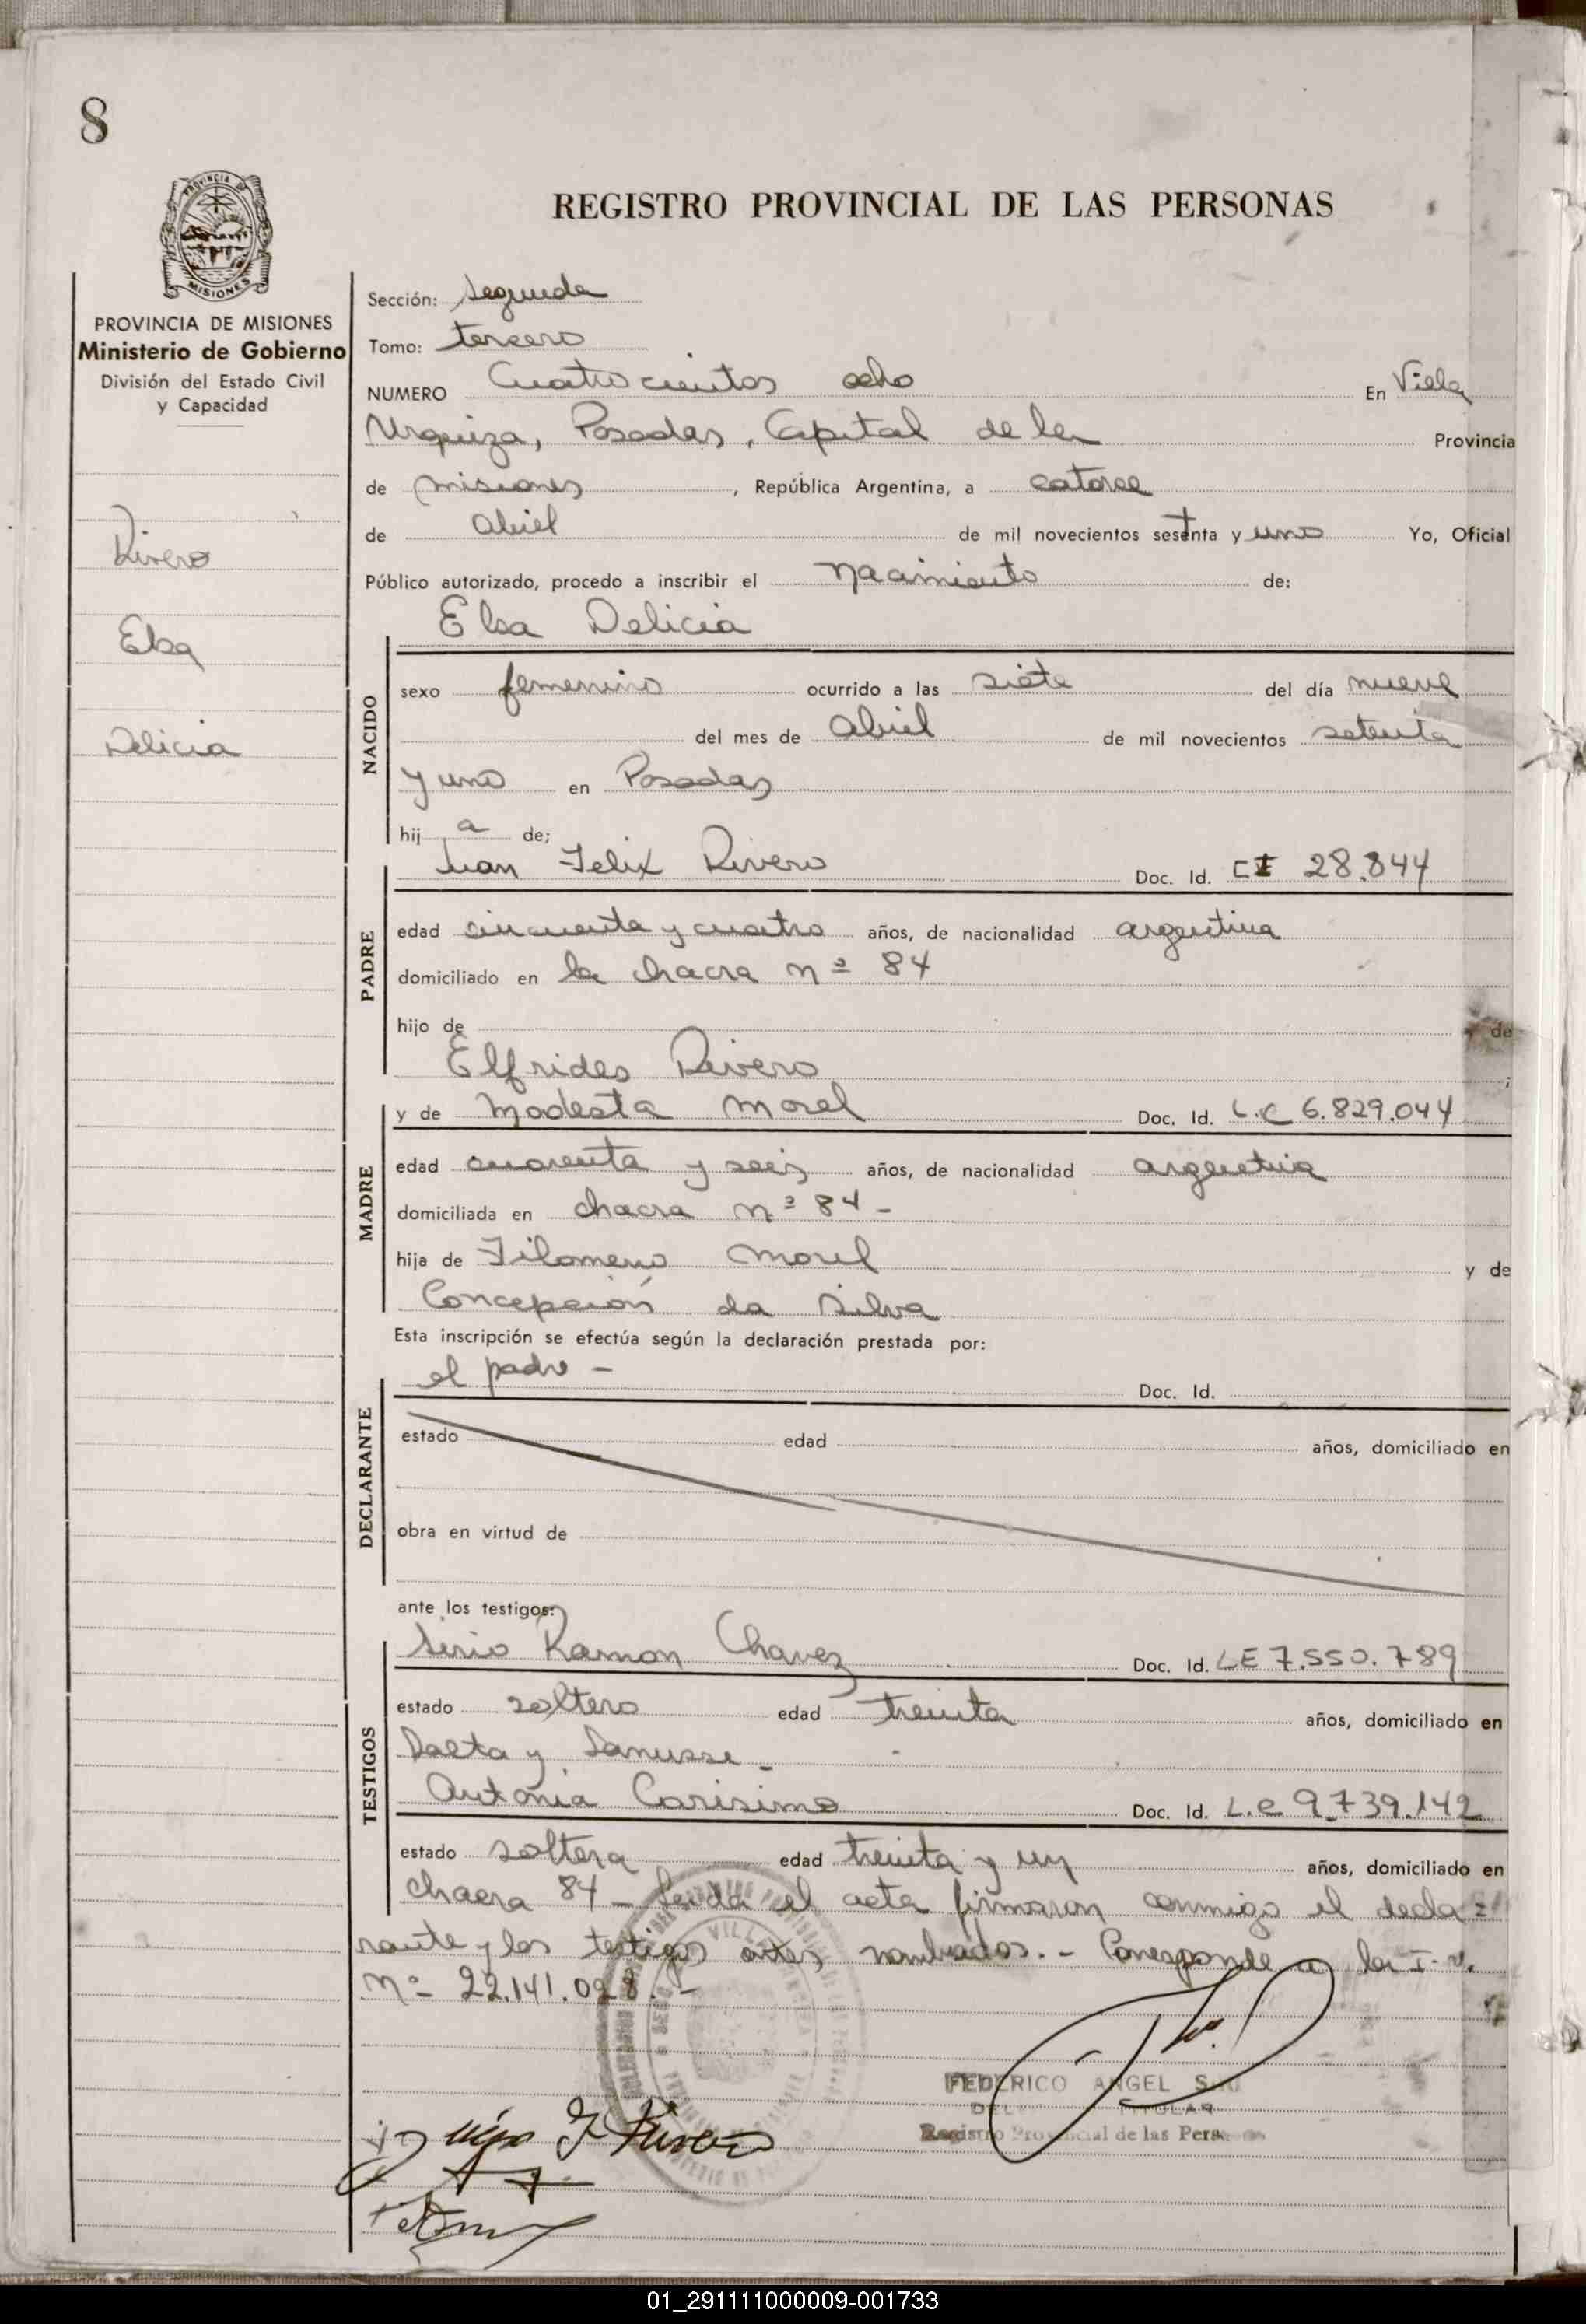 8
PROVINCIA DE
MISIONES
REGISTRO PROVINCIAL DE LAS PERSONAS
PROVINCIA DE MISIONES
Ministerio de Gobierno
División del Estado Civil
y Capacidad
Rivero
Elsa
Delicia
Sección: Segunda
Tomo: tercero
NUMERO Cuatrocientos ocho En Villa
Urquiza, Posadas, Capital de la Provincia
de Misiones, República Argentina, a catorce
de abril de mil novecientos setenta y uno Yo, Oficial
Público autorizado, procedo a inscribir el nacimiento de:
Elsa Delicia
NACIDO
sexo femenino ocurrido a las siete del día nueve
del mes de abril de mil novecientos setenta
y uno en Posadas
hij a de;
Juan Felix Rivero Doc. Id. CI 28.844
PADRE
edad cincuenta y cuatro años, de nacionalidad argentina
domiciliado en la chacra nº 84
hijo de y de
Elfrides Rivero ;
y de Modesta Morel Doc. Id. L.C 6.829.044
MADRE
edad cuarenta y seis años, de nacionalidad argentina
domiciliada en chacra nº 84 -
hija de Filomeno Morel y de
Concepción da Silva
Esta inscripción se efectúa según la declaración prestada por:
el padre - Doc. Id.
DECLARANTE
estado edad años, domiciliado en
obra en virtud de
ante los testigos:
Ramon Chavez Doc. Id. LE 7.550.789
TESTIGOS
estado soltero edad treinta años, domiciliado en
y Lanusse -
Antonia Carisimo Doc. Id. L.C 9.739.142
estado soltera edad treinta y un años, domiciliado en
chacra 84 - Leida el acta firmaron conmigo el decla=
rante y los testigos antes nombrados. - Corresponde a la I. v.
Nº 22.141.028. -
FEDERICO ANGEL
TITULAR
Registro Provincial de las Pers
J Rivero
01_291111000009-001733